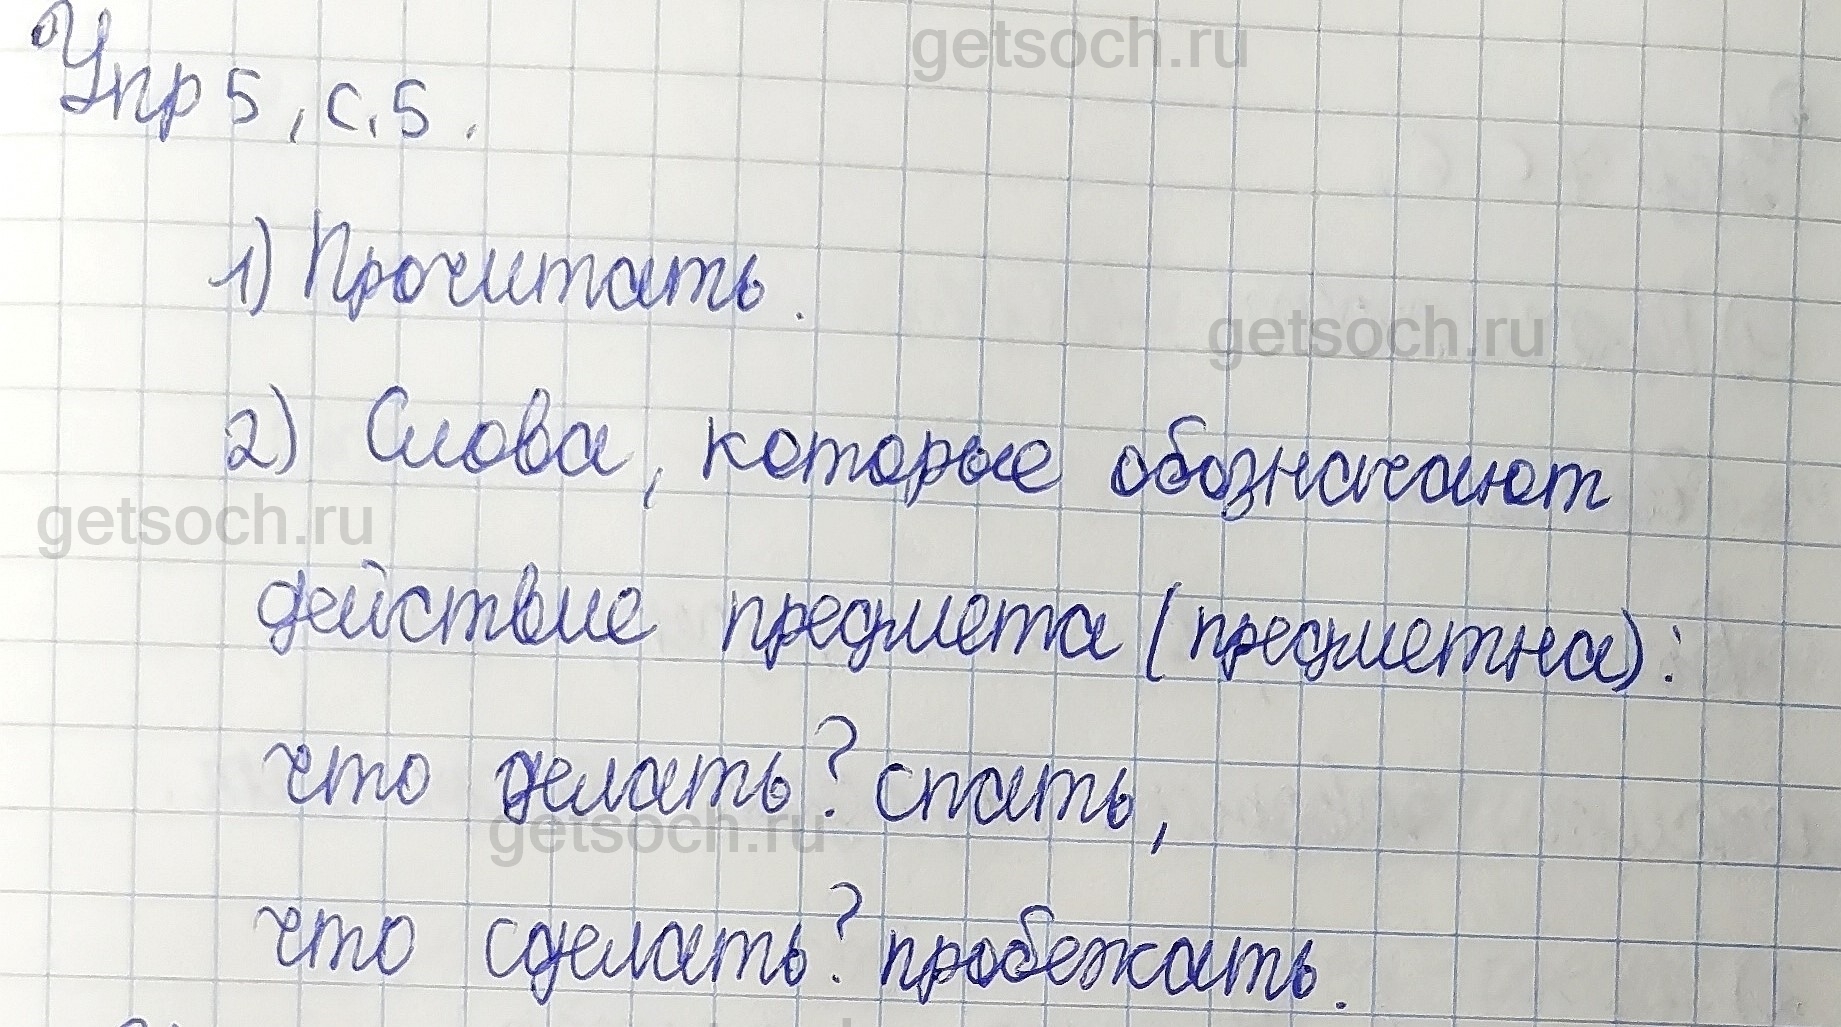 getsoch.ru
Упр 5, с. 5.
1) Прочитать.
getsoch.ru
2) Слова, которые обозначают
getsoch.ru
действие предмета (предметна):
что делать? спать,
getsoch.ru
что сделать? пробежать.